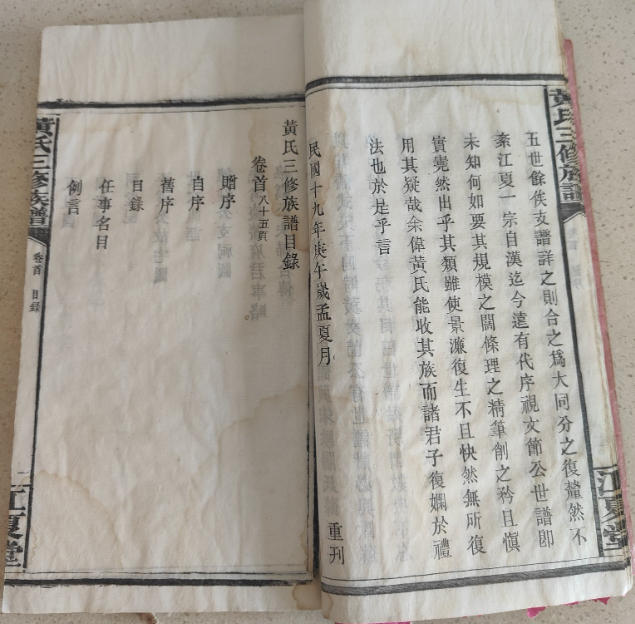 黃氏三修族譜
五世餘佚支譜詳之則合之爲大同分之復釐然不
紊江夏一宗自漢迄今遠有代序視文節公世譜即
未知何如要其規模之闊條理之精筆削之矜且慎
實夐然出乎其類雖使景濂復生不且快然無所復
用其疑哉余偉黃氏能收其族而諸君子復嫻於禮
法也於是乎言
民國十九年庚午歲孟夏月
重刊
江夏堂
黃氏三修族譜目錄
卷首八十五頁
贈序
自序
舊序
目錄
任事名目
例言
黃氏三修族譜
卷首
目錄
江夏堂